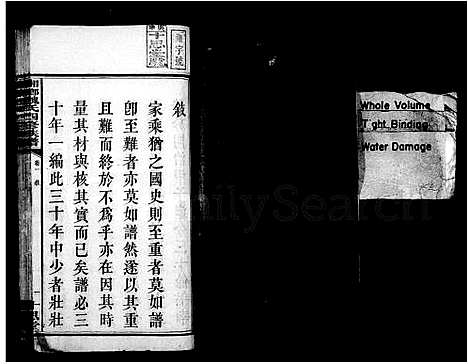 敘
家乘猶之國史則至重者莫如譜
卽至難者亦莫如譜然遂以其重
且難而終於不爲乎亦在因其時
量其材與核其實而已矣譜必三
十年一編此三十年中少者壯壯
Whole Volume
Tight Binding
Water Damage
FamilySearch